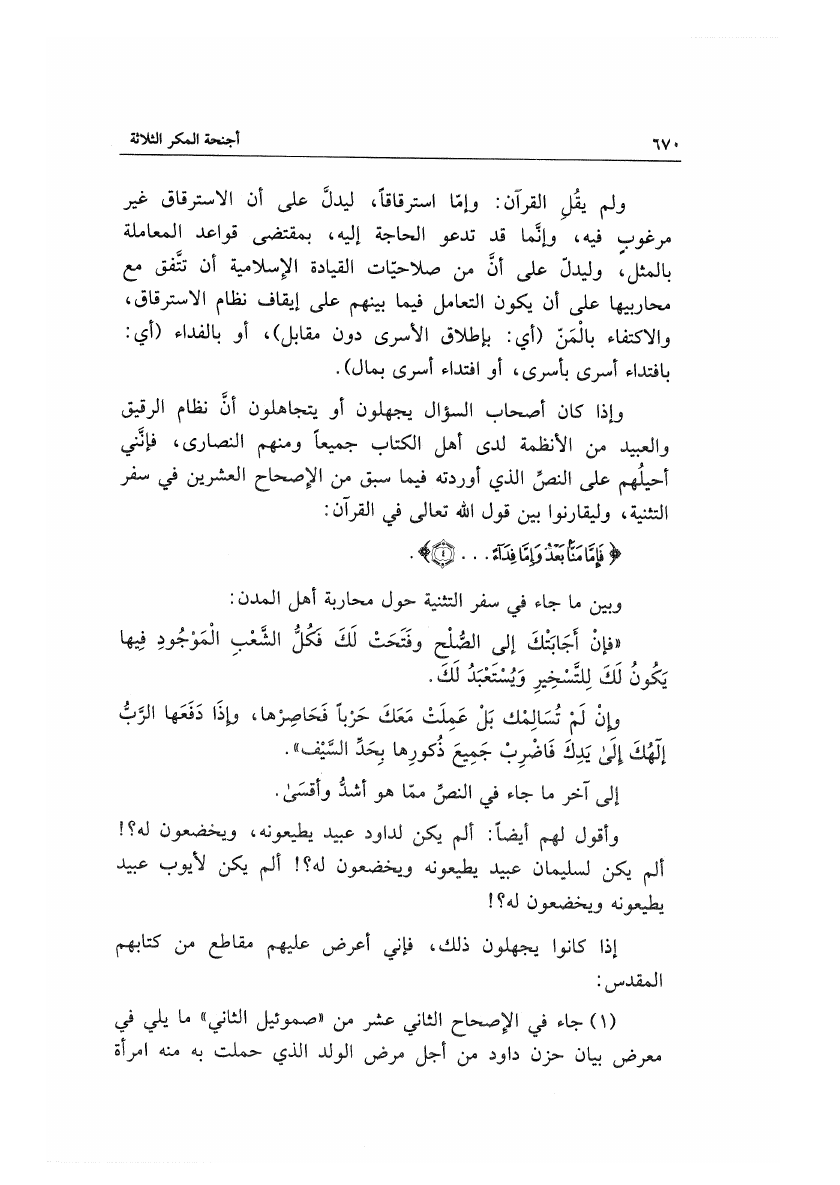 ٦٧٠
أجنحة المكر الثلاثة
ولم يقُلِ القرآن: وإمّا استرقاقاً، ليدلَّ على أن الاسترقاق غير
مرغوبٍ فيه، وإنَّما قد تدعو الحاجة إليه، بمقتضى قواعد المعاملة
بالمثل، وليدلّ على أنَّ من صلاحيّات القيادة الإسلامية أن تتَّفق مع
محاربيها على أن يكون التعامل فيما بينهم على إيقاف نظام الاسترقاق،
والاكتفاء بالْمَنّ (أي: بإطلاق الأسرى دون مقابل)، أو بالفداء (أي:
بافتداء أسرى بأسرى، أو افتداء أسرى بمال).
وإذا كان أصحاب السؤال يجهلون أو يتجاهلون أنَّ نظام الرقيق
والعبيد من الأنظمة لدى أهل الكتاب جميعاً ومنهم النصارى، فإنَّني
أحيلُهم على النصِّ الذي أوردته فيما سبق من الإصحاح العشرين في سفر
التثنية، وليقارنوا بين قول الله تعالى في القرآن:
﴿فَإِمَّا مَنًّا بَعْدُ وَإِمَّا فِدَآءً... ٤﴾.
وبين ما جاء في سفر التثنية حول محاربة أهل المدن:
«فإنْ أَجَابَتْكَ إلى الصُّلْح وفَتَحَتْ لَكَ فَكُلُّ الشَّعْبِ الْمَوْجُودِ فِيها
يَكُونُ لَكَ لِلتَّسْخِيرِ وَيُسْتَعْبَدُ لَكَ.
وإِنْ لَمْ تُسَالِمْك بَلْ عَمِلَتْ مَعَكَ حَرْباً فَحَاصِرْها، وإِذَا دَفَعَها الرَّبُّ
إلٰهُكَ إِلَىٰ يَدِكَ فَاضْرِبْ جَمِيعَ ذُكُورِها بِحَدِّ السَّيْف».
إلى آخر ما جاء في النصِّ ممّا هو أشدُّ وأقسَىٰ.
وأقول لهم أيضاً: ألم يكن لداود عبيد يطيعونه، ويخضعون له؟!
ألم يكن لسليمان عبيد يطيعونه ويخضعون له؟! ألم يكن لأيوب عبيد
يطيعونه ويخضعون له؟!
إذا كانوا يجهلون ذلك، فإني أعرض عليهم مقاطع من كتابهم
المقدس:
(١) جاء في الإصحاح الثاني عشر من «صموئيل الثاني» ما يلي في
معرض بيان حزن داود من أجل مرض الولد الذي حملت به منه امرأة